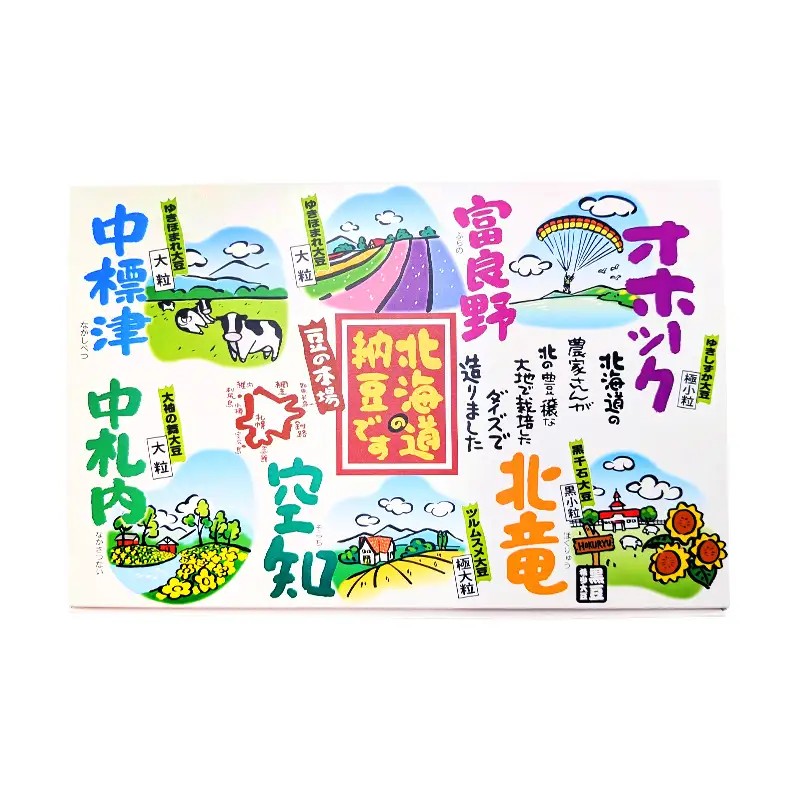 中標津
なかしべつ
ゆきほまれ大豆
大粒
ゆきほまれ大豆
大粒
富良野
ふらの
オホーツク
ゆきしずか大豆
極小粒
豆の本場
北海道の
納豆です
北海道の
農家さんが
北の豊穣な
大地で栽培した
ダイズで
造りました
中札内
なかさつない
大袖の舞大豆
大粒
札幌
釧路
空知
そらち
ツルムスメ大豆
極大粒
北竜
ほくりゅう
黒千石大豆
黒小粒
HOKURYU
黒豆